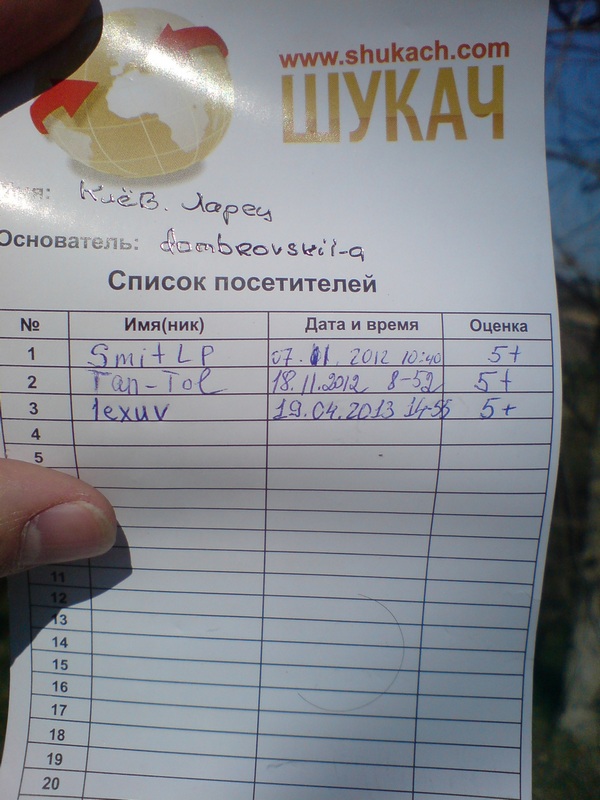 www.shukach.com
ШУКАЧ
Клёв. Ларец
Основатель: dombrovskii-a
Список посетителей
№ Имя(ник) Дата и время Оценка
1 SmitLP 07.11.2012 10:40 5+
2 Tan-Tol 18.11.2012 8-52 5+
3 lexuv 19.04.2013 14-55 5+
4
5
11
12
13
14
15
16
17
18
19
20